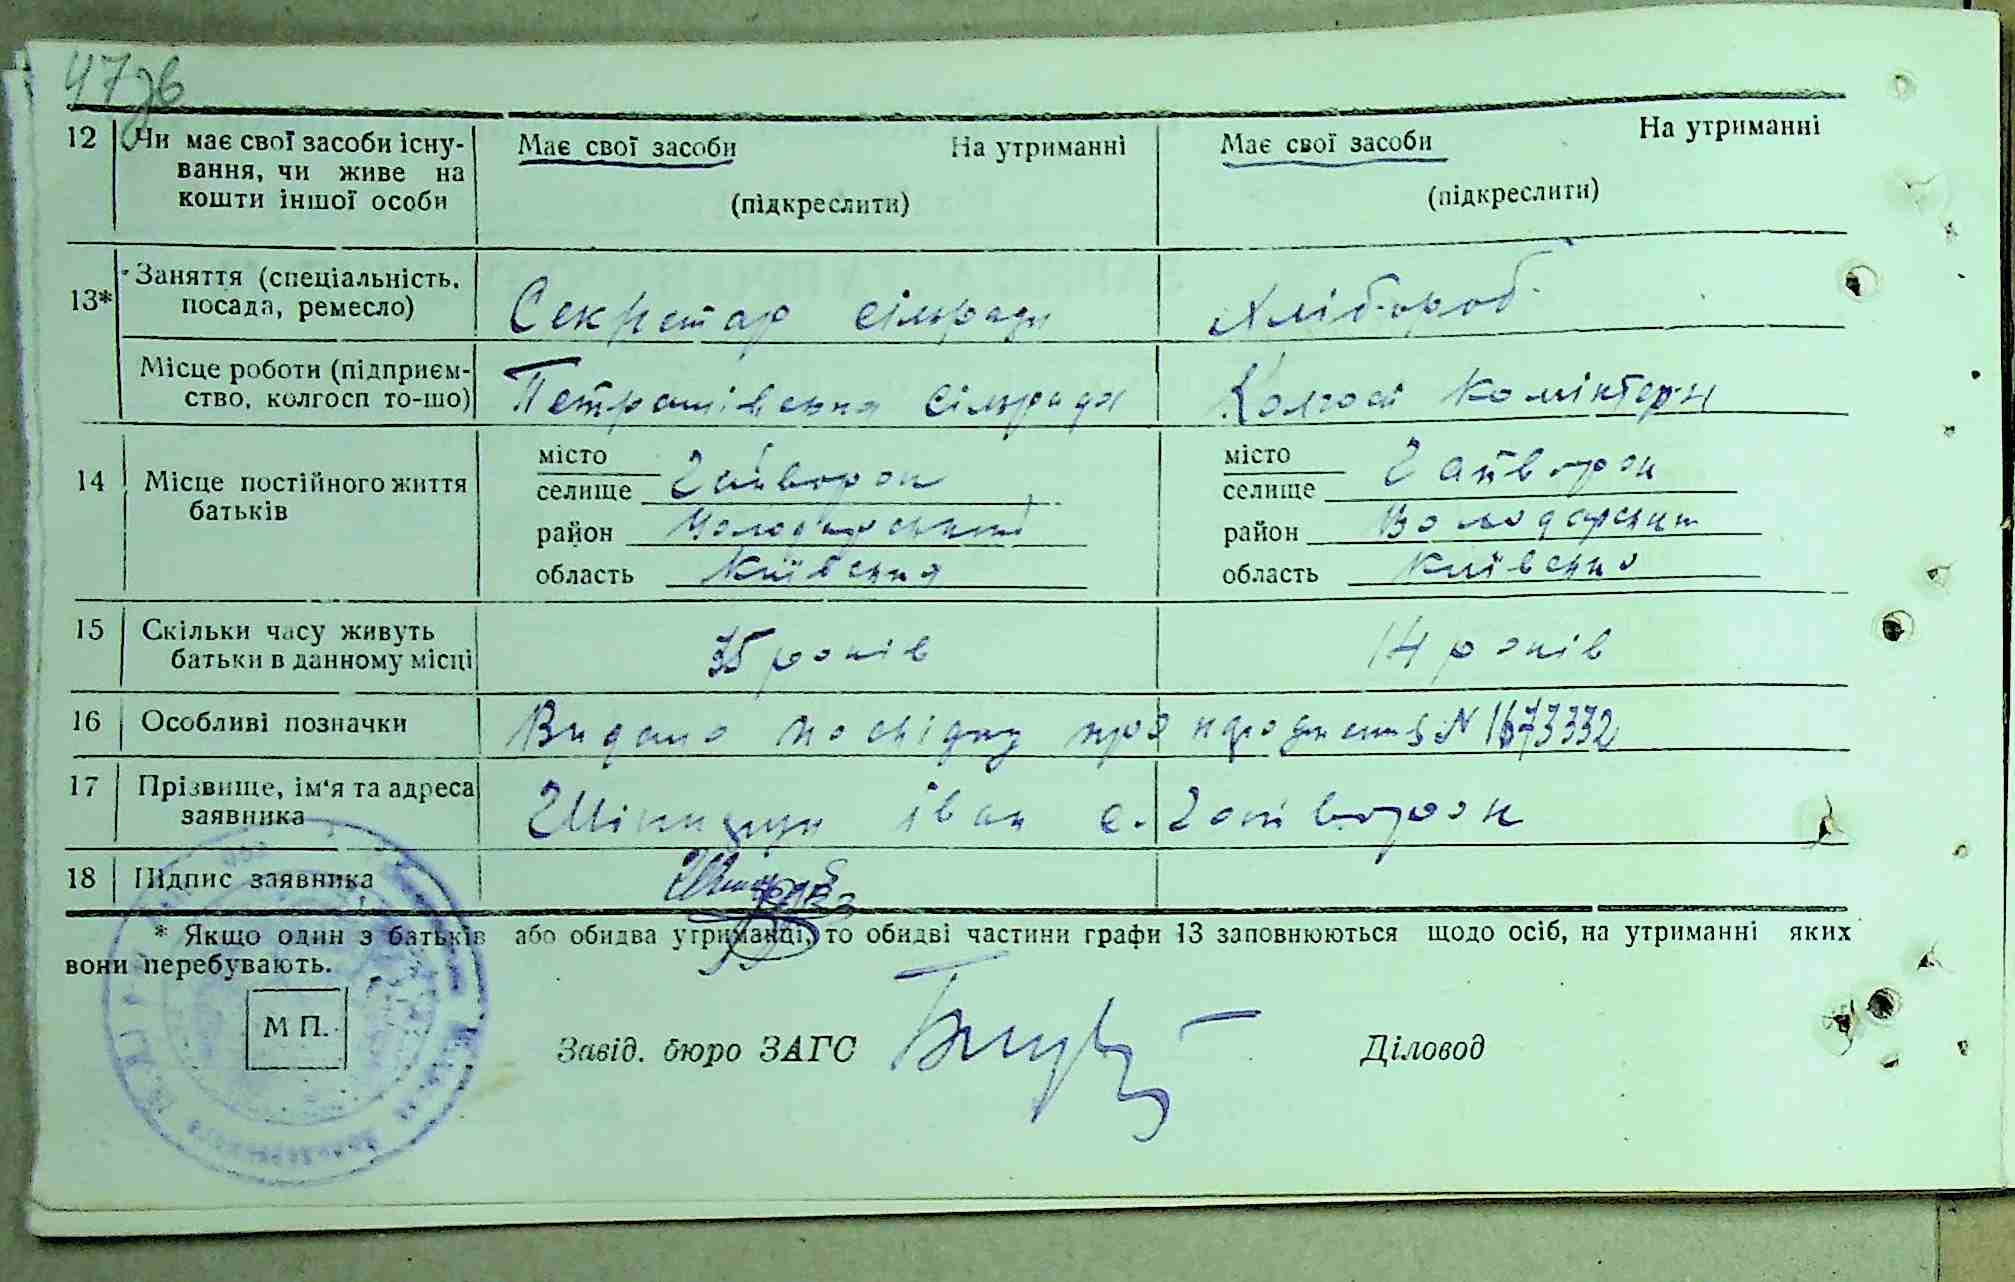 47зв
12 Чи має свої засоби існу-
вання, чи живе на
кошти іншої особи
Має свої засоби На утриманні
(підкреслити)
Має свої засоби На утриманні
(підкреслити)
13* Заняття (спеціальність,
посада, ремесло)
Секретар сільради
Хлібороб
Місце роботи (підприєм-
ство, колгосп то-що)
Петрашівська сільрада
Колгосп Комінтерн
14 Місце постійного життя
батьків
місто
селище Гайворон
район Володарський
область Київська
місто
селище Гайворон
район Володарський
область Київська
15 Скільки часу живуть
батьки в данному місці
35 років
14 років
16 Особливі позначки
Видано посвідку про народження N 1673332
17 Прізвище, ім'я та адреса
заявника
Іван с. Гайворон
18 Підпис заявника
* Якщо один з батьків або обидва утриманці, то обидві частини графи 13 заповнюються щодо осіб, на утриманні яких
вони перебувають.
М П.
Завід. бюро ЗАГС
Діловод